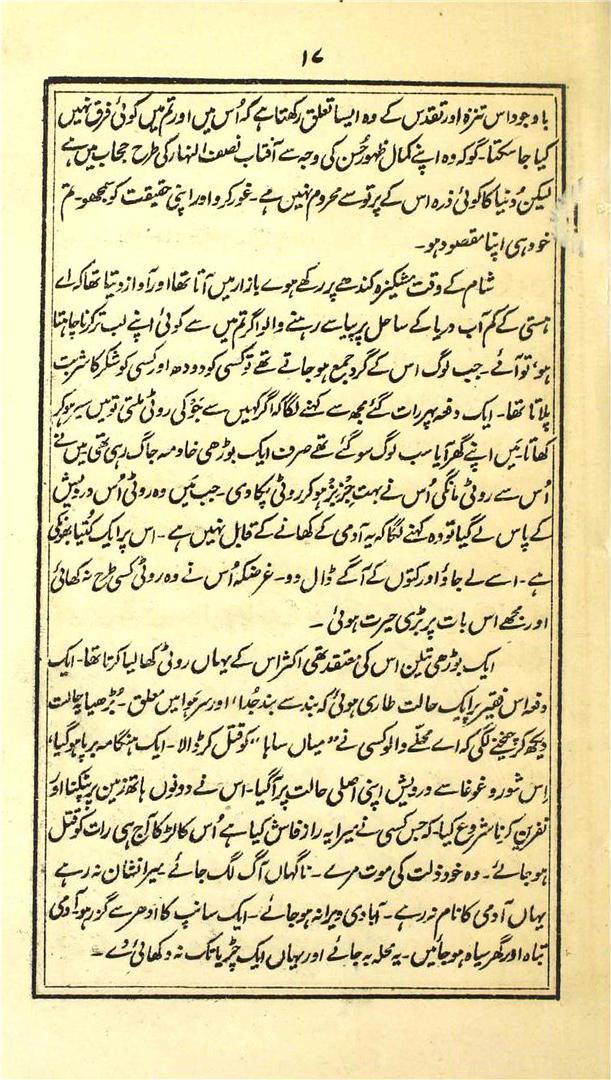 ۱۷
باوجود اس تنزہ اور تقدس کے وہ ایسا تعلق رکھتا ہے کہ اُس میں اور تم میں کوئی فرق نہیں
کیا جا سکتا۔ گو کہ وہ اپنے کمال ظہور حُسن کی وجہ سے آفتاب نصف النہار کی طرح حجاب میں ہے
لیکن دُنیا کا کوئی ذرہ اس کے پرتو سے محروم نہیں ہے۔ غور کرو اور اپنی حقیقت کو سمجھو۔ تم
خود ہی اپنا مقصود ہو۔
شام کے وقت مشکیزہ کندھے پر رکھے ہوے بازار میں آتا تھا اور آواز دیتا تھا کہ اے
ہستی کے کم آب دریا کے ساحل پر پیاسے رہنے والو اگر تم میں سے کوئی اپنے لب تر کرنا چاہتا
ہو تو آئے۔ جب لوگ اس کے گرد جمع ہو جاتے تھے تو کسی کو دودھ اور کسی کو شکر کا شربت
پلاتا تھا۔ ایک دفعہ پہر رات گئے مجھ سے کہنے لگا کہ اگر کہیں سے جَو کی روٹی ملتی تو میں سیر ہو کر
کھاتا۔ میں اپنے گھر آیا سب لوگ سو گئے تھے صرف ایک بوڑھی خادمہ جاگ رہی تھی میں نے
اُس سے روٹی مانگی اُس نے بہت جُزبُز ہو کر روٹی پکا دی۔ جب میں وہ روٹی اُس درویش
کے پاس لے گیا تو وہ کہنے لگا کہ یہ آدمی کے کھانے کے قابل نہیں ہے۔ اس پر ایک کُتیا بھونکی
ہے۔ اسے لے جاؤ اور کتوں کے آگے ڈال دو۔ غرضکہ اُس نے وہ روٹی کسی طرح نہ کھائی
اور مجھے اس بات پر بڑی حیرت ہوئی۔
ایک بوڑھی تیلن اس کی معتقد تھی اکثر اس کے یہاں روٹی کھا لیا کرتا تھا۔ ایک
دفعہ اس فقیر پر ایک حالت طاری ہوئی کہ بند سے بند جُدا، اور سر ہَوا میں معلق۔ بُڑھیا یہ حالت
دیکھ کر چیخنے لگی کہ اے محلّے والو کسی نے "میاں ساہا" کو قتل کر ڈالا۔ ایک ہنگامہ برپا ہو گیا،
اِس شور و غوغا سے درویش اپنی اصلی حالت پر آ گیا۔ اس نے دونوں ہاتھ زمین پر پٹکنا اور
نفرین کرنا شروع کیا۔ کہ جس کسی نے میرا یہ راز فاش کیا ہے اُس کا لڑکا آج ہی رات کو قتل
ہو جائے۔ وہ خود ذلت کی موت مرے۔ ناگہاں آگ لگ جائے۔ میرا نشان نہ رہے
یہاں آدمی کا نام نہ رہے۔ آبادی ویرانہ ہو جائے۔ ایک سانپ کا ادھر سے گزر ہو۔ آدمی
تباہ اور گھر سیاہ ہو جائیں۔ یہ محلہ بہ جائے اور یہاں ایک چڑیا تک نہ دکھائی دے۔